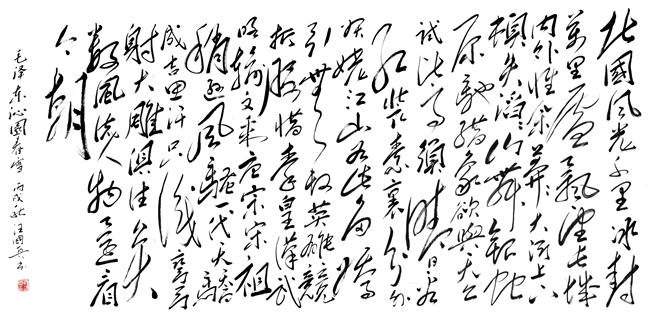 北國风光千里冰封
萬里雪飘望长城
内外惟余莽莽大河上下
頓失滔滔山舞銀蛇
原馳蜡象欲與天公
試比高須晴日看
红装素裹分外
妖娆江山如此多娇
引無数英雄競
折腰惜秦皇漢武
略输文采唐宗宋祖
稍逊风騷一代天驕
成吉思汗只识弯弓
射大雕俱往矣
数風流人物还看
今朝
毛泽东沁園春雪 丙戌秋 汪國